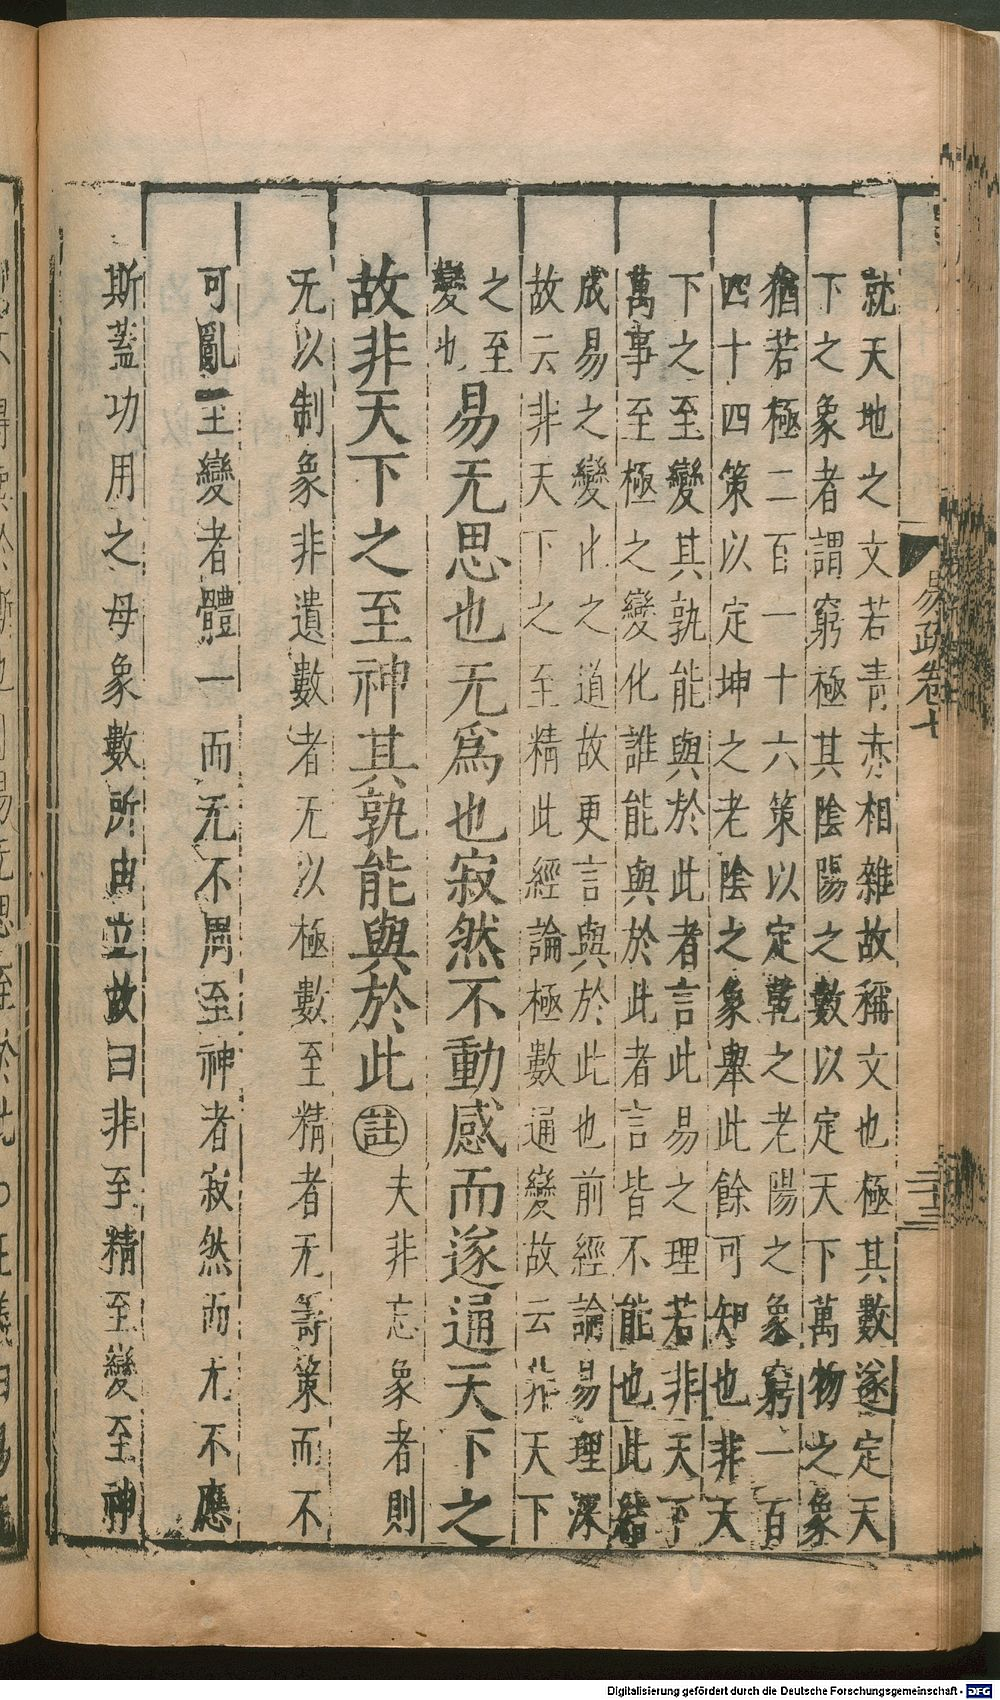 易疏卷十
就天地之文若青赤相雜故稱文也極其數遂定天
下之象者謂窮極其陰陽之數以定天下萬物之象
猶若極二百一十六策以定乾之老陽之象窮一百
四十四策以定坤之老陰之象舉此餘可知也非天
下之至變其孰能與於此者言此易之理若非天下
萬事至極之變化誰能與於此者言皆不能也此結
成易之變化之道故更言與於此也前經論易理深
故云非天下之至精此經論極數通變故云非天下
之至
變也
易无思也无爲也寂然不動感而遂通天下之
故非天下之至神其孰能與於此註
夫非忘象者則
无以制象非遺數者无以極數至精者无籌策而不
可亂至變者體一而无不周至神者寂然而无不應
斯蓋功用之母象數所由立故曰非至精至變至神
Digitalisierung gefördert durch die Deutsche Forschungsgemeinschaft - DFG